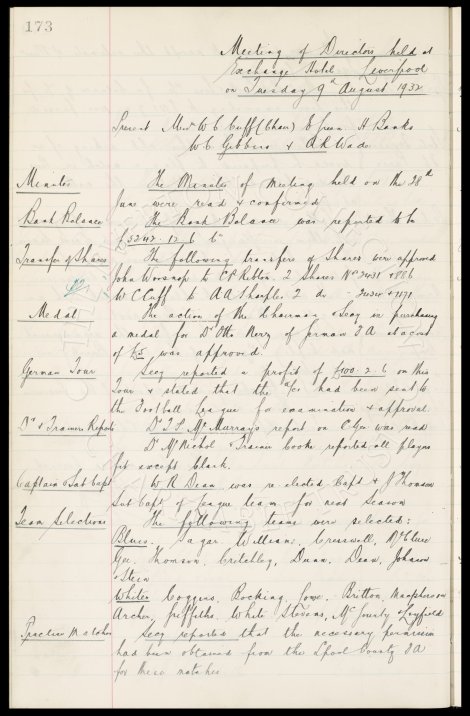 173
Meeting of Directors held at
Exchange Hotel Liverpool
on Tuesday 9th August 1932
Present Messrs W C Cuff (Chair) E Green H Banks
W C Gibbins & A R Wade
Minutes The Minutes of Meeting held on the 28th
June were read & confirmed
Bank Balance The Bank Balance was reported to be
£5242. 12. 6
Transfer of Shares The following transfers of Shares were approved
John Worsnop to 2 Shares No 2431 +
W C Cuff to A A Sharples 2 do
Medal The action of the Chairman & Secy in purchasing
a medal for Dr Otto Nerz of German F A at a cost
of £5 was approved.
German Tour Secy reported a profit of £100. 2. 6 on this
Tour & stated that the a/cs had been sent to
the Football League for examination & approval.
Drs & Trainers Reports Murrays report on C Gee was read
Dr McNichol & Trainer Cooke reported all players
fit except Clark.
Captain & Sub Capt W R Dean was re-elected Capt & J Thomson
Sub Capt of League team for next season
Team Selections The following teams were selected:
Blues. Sagar Williams, Cresswell, McClure
Gee. Thomson, Critchley, Dunn, Dean, Johnson
& Stein
Whites Coggins, Bocking, Lowe, Britton, Macpherson
Archer, Griffiths, White Stevens, McGourty & Leyfield
Practice Matches Secy reported that the necessary permission
had been obtained from the Lpool County F A
for these matches